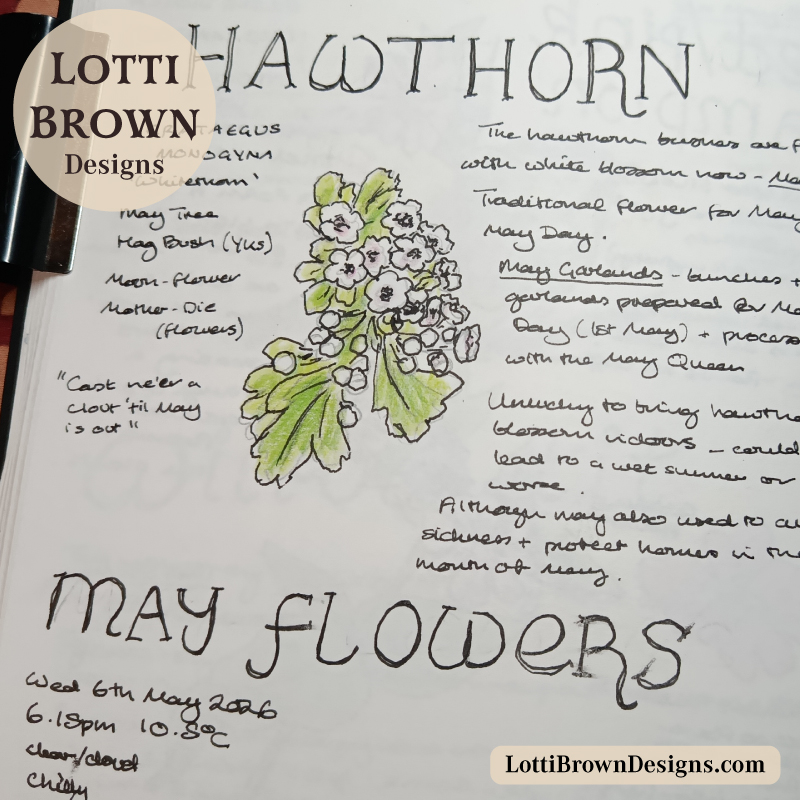 HAWTHORN
LOTTI
BROWN
Designs
TAEGUS
MONOGYNA
'Whitethorn'
May Tree
Hag Bush (Yks)
Moon-flower
Mother-Die
(flowers)
"Cast ne'er a
clout 'til May
is out"
The hawthorn bushes are
with white blossom now -
Traditional flower for May
May Day.
May Garlands - bunches +
garlands prepared for
Day (1st May) + proces
with the May Queen
Unlucky to bring hawtho
blossom indoors - could
lead to a wet summer or
worse.
Although may also used to
sickness + protect homes in the
month of May.
MAY FLOWERS
Wed 6th May 2026
6.15pm 10.5°C
clear/cloud
Chilly
LottiBrownDesigns.com